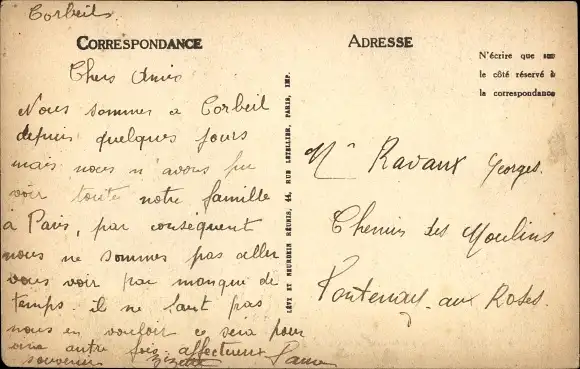 Corbeils
CORRESPONDANCE
Chers Amis
Nous sommes a Corbeil
depuis quelques jours
mais nous n'avons pu
voir toute notre famille
à Paris, par conséquent
nous ne sommes pas aller
vous voir par manque de
temps. il ne faut pas
nous en vouloir ce sera pour
une autre fois affectueux
souvenir
LÉVY ET NEURDEIN RÉUNIS, 44, RUE LETELLIER, PARIS, IMP.
ADRESSE
N'écrire que sur
le côté réservé à
la correspondance
Mr Ravaux Georges.
Chemin des Moulins
Fontenay-aux Roses.